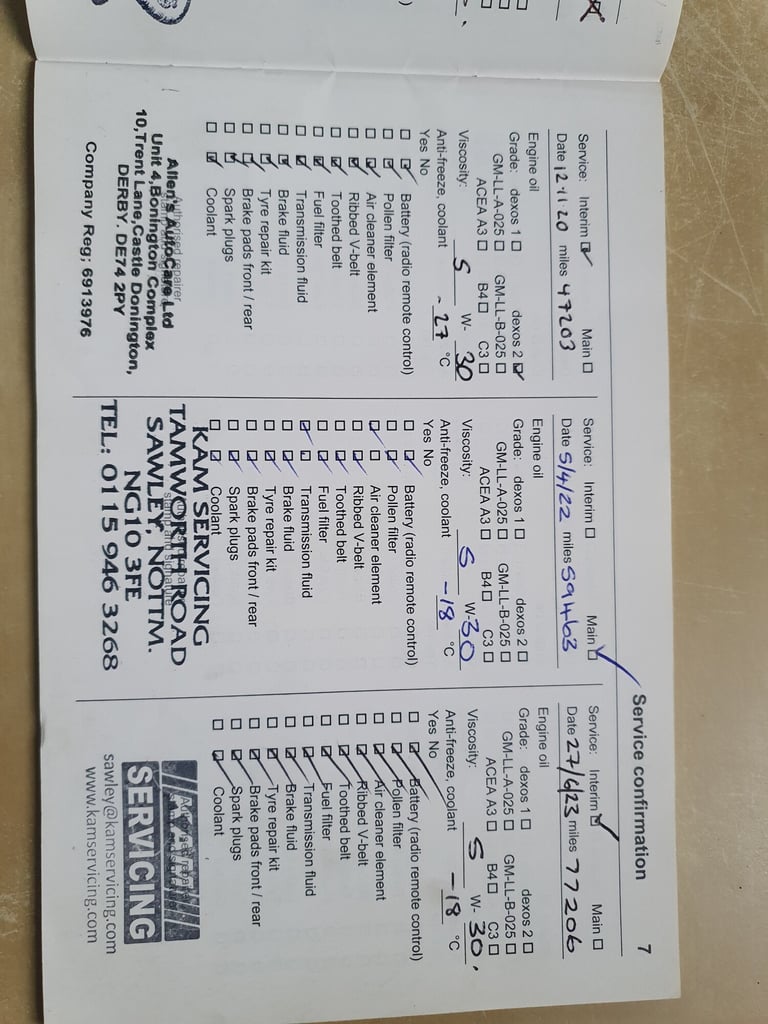 Service confirmation 7
Service: Interim ☑ Main ☐
Date 12·11·20 miles 47203
Engine oil
Grade: dexos 1 ☐ dexos 2 ☑
GM-LL-A-025 ☐ GM-LL-B-025 ☐
ACEA A3 ☐ B4 ☐ C3 ☐
Viscosity: 5 W- 30
Anti-freeze, coolant - 27 °C
Yes No
☐ ☑ Battery (radio remote control)
☐ ☑ Pollen filter
☐ ☑ Air cleaner element
☐ ☑ Ribbed V-belt
☐ ☑ Toothed belt
☐ ☑ Fuel filter
☐ ☑ Transmission fluid
☐ ☑ Brake fluid
☐ ☑ Tyre repair kit
☐ ☑ Brake pads front / rear
☐ ☑ Spark plugs
☐ ☑ Coolant
Authorised repairer
Allen's AutoCare Ltd
Unit 4,Bonington Complex
10,Trent Lane,Castle Donington,
DERBY. DE74 2PY
Company Reg: 6913976
Service: Interim ☐ Main ☑
Date 5/4/22 miles 59463
Engine oil
Grade: dexos 1 ☐ dexos 2 ☐
GM-LL-A-025 ☐ GM-LL-B-025 ☐
ACEA A3 ☐ B4 ☐ C3 ☐
Viscosity: 5 W- 30
Anti-freeze, coolant -18 °C
Yes No
☐ ☑ Battery (radio remote control)
☐ ☑ Pollen filter
☑ ☐ Air cleaner element
☐ ☑ Ribbed V-belt
☐ ☑ Toothed belt
☐ ☑ Fuel filter
☑ ☐ Transmission fluid
☐ ☑ Brake fluid
☐ ☑ Tyre repair kit
☐ ☑ Brake pads front / rear
☐ ☑ Spark plugs
☐ ☑ Coolant
KAM SERVICING
TAMWORTH ROAD
SAWLEY, NOTTM.
NG10 3FE
TEL: 0115 946 3268
Service: Interim ☑ Main ☐
Date 27/6/23 miles 77206
Engine oil
Grade: dexos 1 ☐ dexos 2 ☐
GM-LL-A-025 ☐ GM-LL-B-025 ☐
ACEA A3 ☐ B4 ☐ C3 ☐
Viscosity: 5 W- 30.
Anti-freeze, coolant -18 °C
Yes No
☐ ☑ Battery (radio remote control)
☐ ☑ Pollen filter
☐ ☑ Air cleaner element
☐ ☑ Ribbed V-belt
☐ ☑ Toothed belt
☐ ☑ Fuel filter
☐ ☑ Transmission fluid
☐ ☑ Brake fluid
☐ ☑ Tyre repair kit
☐ ☑ Brake pads front / rear
☐ ☑ Spark plugs
☐ ☑ Coolant
SERVICING
sawley@kamservicing.com
www.kamservicing.com